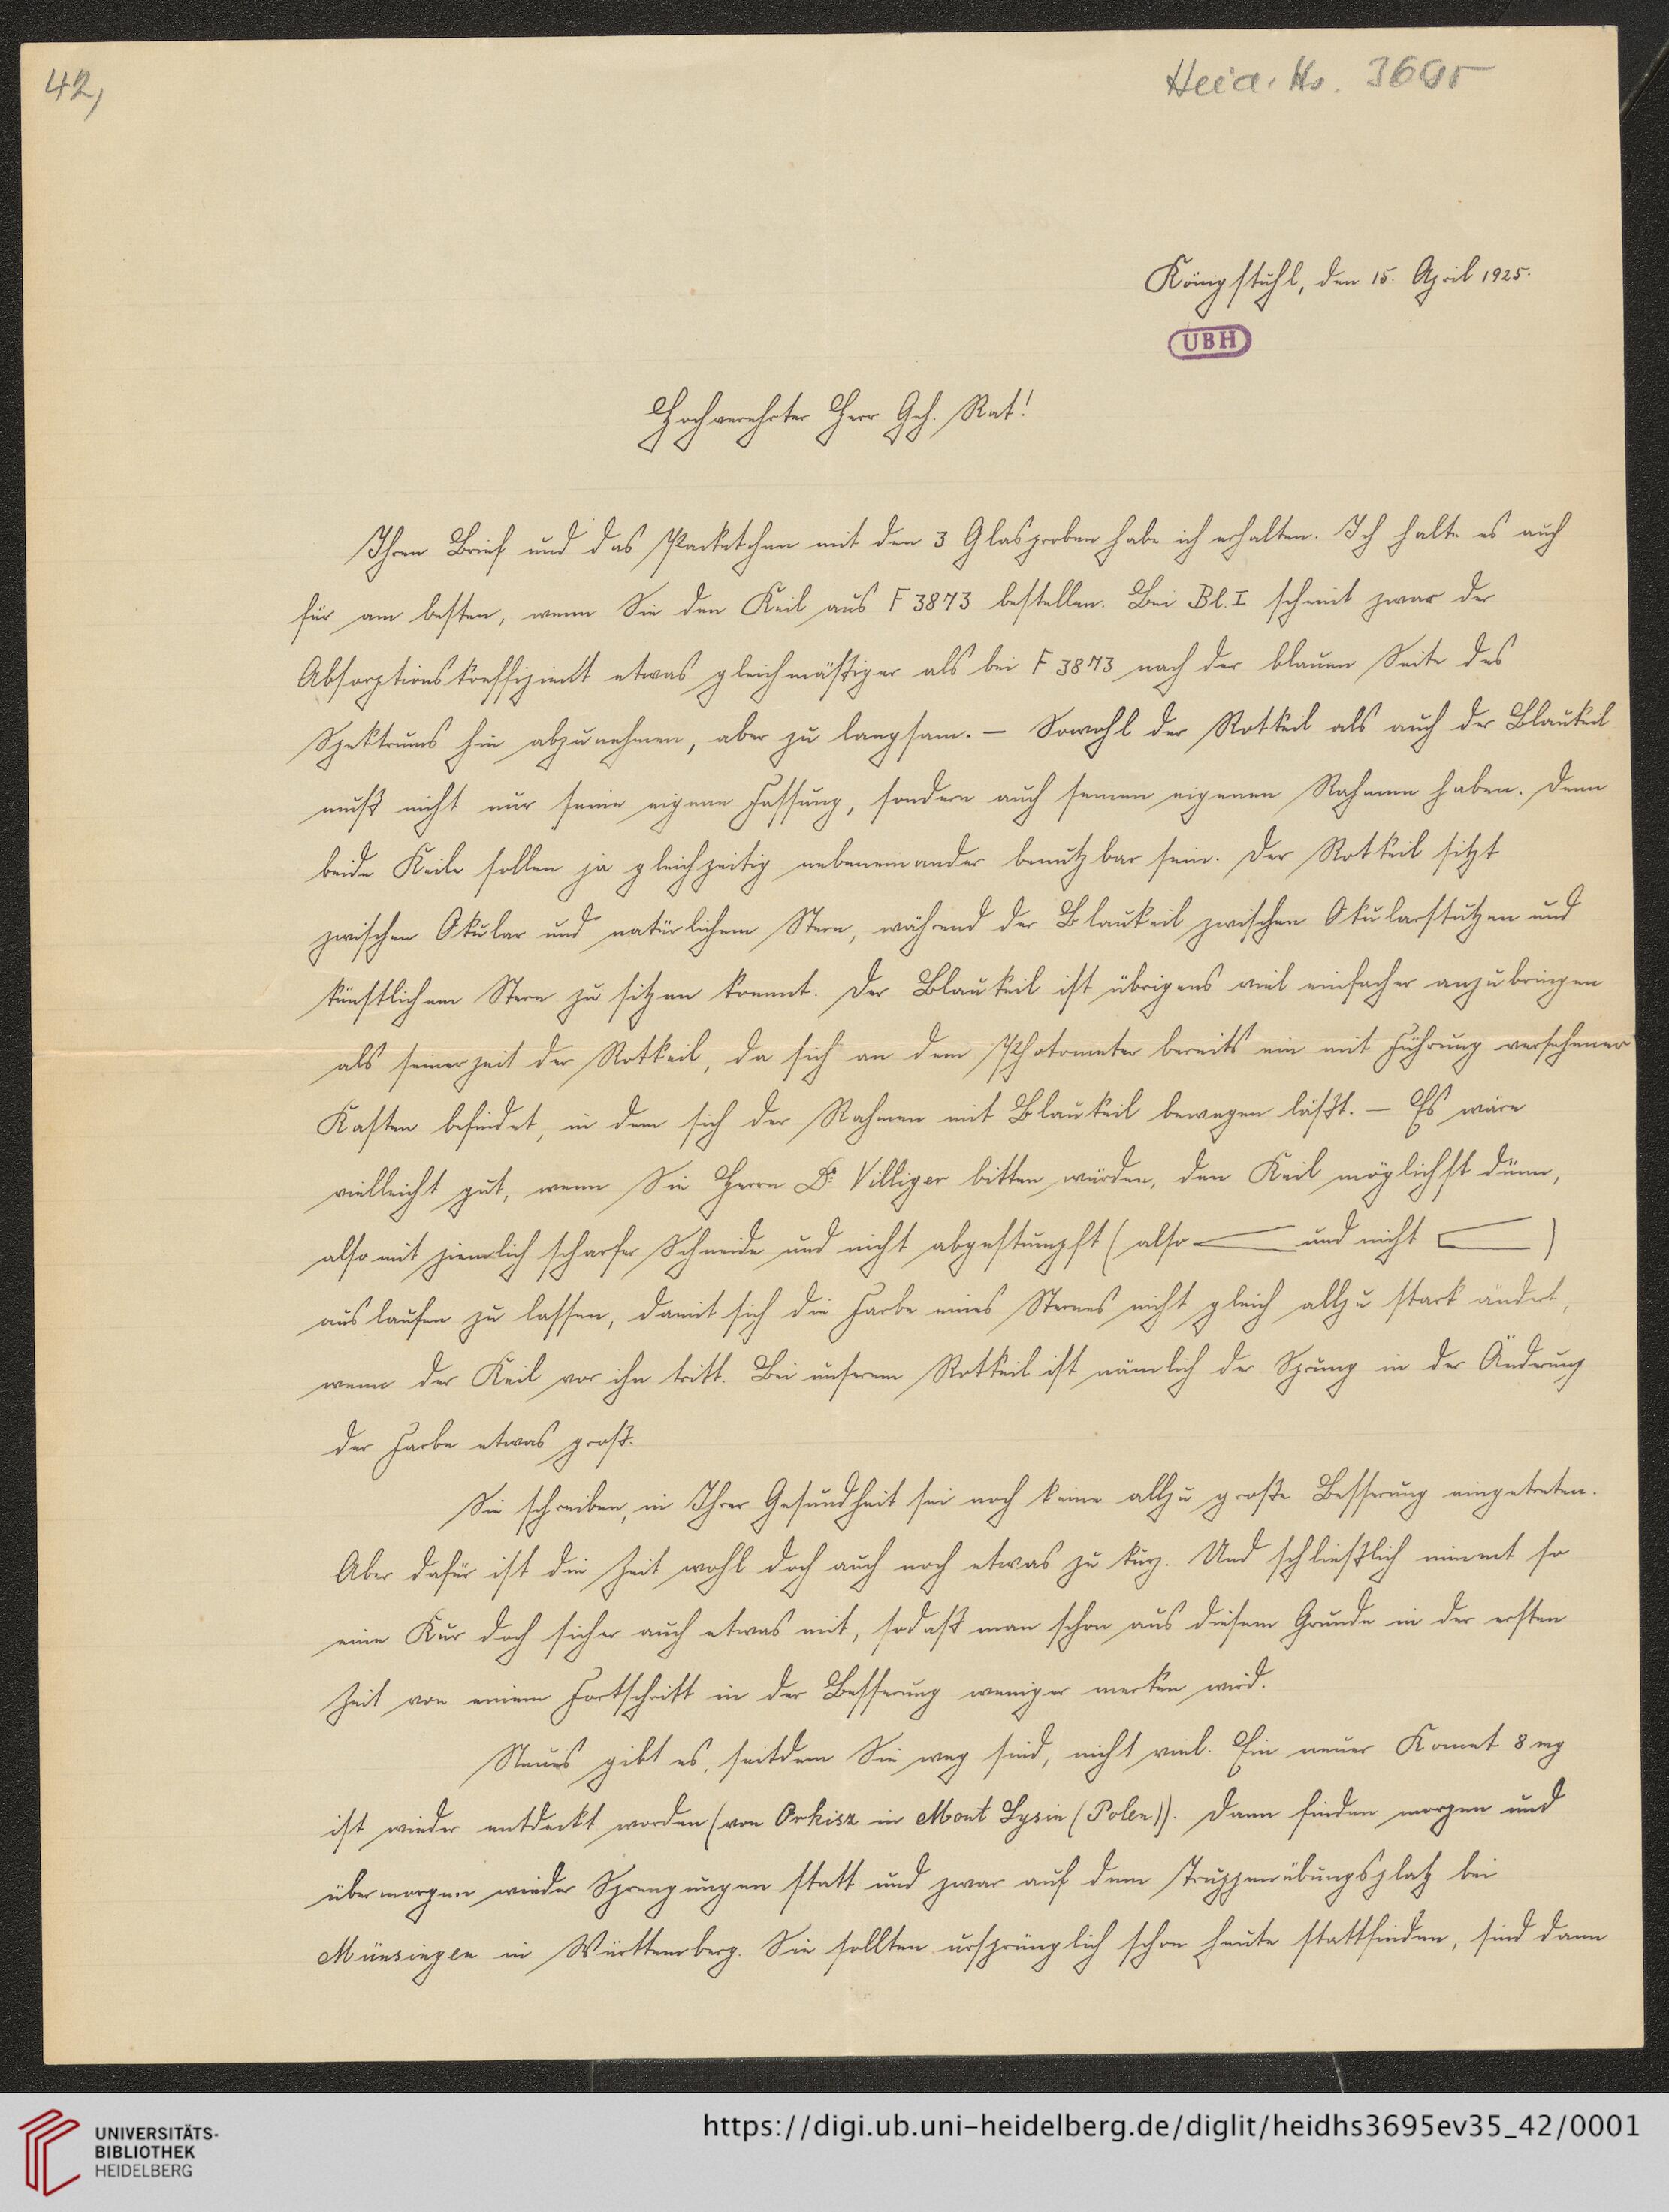 42,
Heid. Hs. 3695
Königstuhl, den 15. April 1925.
UBH
Hochverehrter Herr Geh. Rat!
Ihren Brief und das Packetchen mit den 3 Glasproben habe ich erhalten. Ich halte es auch
für am besten, wenn Sie den Keil aus F 3873 bestellen. Bei Bl. I scheint zwar der
Absorptionskoeffizient etwas gleichmäßiger als bei F 3873 nach der blauen Seite des
Spektrums hin abzunehmen, aber zu langsam. — Sowohl der Rotkeil als auch der Blaukeil
muß nicht nur seine eigene Fassung, sondern auch seinen eigenen Rahmen haben. Denn
beide Keile sollen ja gleichzeitig nebeneinander benutzbar sein. Der Rotkeil sitzt
zwischen Okular und natürlichem Stern, während der Blaukeil zwischen Okularstutzen und
künstlichem Stern zu sitzen kommt. Der Blaukeil ist übrigens viel einfacher anzubringen
als seinerzeit der Rotkeil, da sich an dem Photometer bereits ein mit Führung versehener
Kasten befindet, in dem sich der Rahmen mit Blaukeil bewegen läßt. — Es wäre
vielleicht gut, wenn Sie Herrn Dr. Villiger bitten würden, den Keil möglichst dünn,
also mit ziemlich scharfer Schneide und nicht abgestumpft (also und nicht )
auslaufen zu lassen, damit sich die Farbe eines Sternes nicht gleich allzu stark ändert,
wenn der Keil vor ihn tritt. Bei unserem Rotkeil ist nämlich der Sprung in der Änderung
der Farbe etwas groß.
Sie schreiben, in Ihrer Gesundheit sei noch keine allzu große Besserung eingetreten.
Aber dafür ist die Zeit wohl doch auch noch etwas zu kurz. Und schließlich nimmt so
eine Kur doch sicher auch etwas mit, sodaß man schon aus diesem Grunde in der ersten
Zeit von einem Fortschritt in der Besserung weniger merken wird.
Neues gibt es, seitdem Sie weg sind, nicht viel. Ein neuer Komet 8 mg
ist wieder entdeckt worden (von Orkisz in Mont Lysin (Polen)). Dann finden morgen und
übermorgen wieder Sprengungen statt und zwar auf dem Truppenübungsplatz bei
Münsingen in Württemberg. Sie sollten ursprünglich schon heute stattfinden, sind dann
UNIVERSITÄTS-
BIBLIOTHEK
HEIDELBERG
https://digi.ub.uni-heidelberg.de/diglit/heidhs3695ev35_42/0001